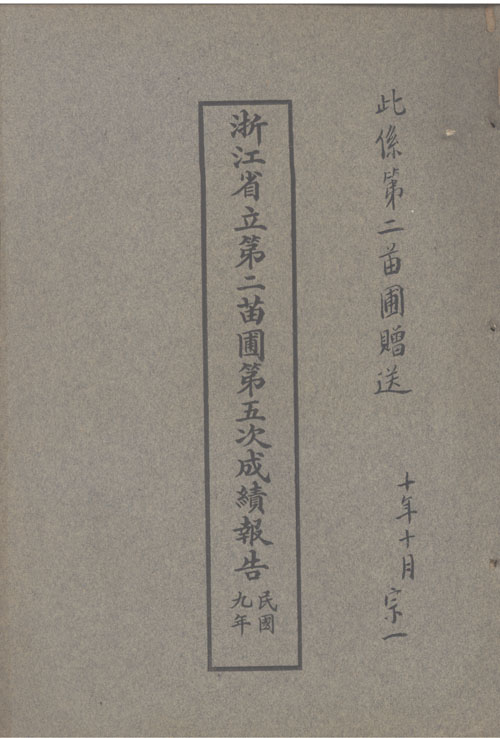 此係第二苗圃贈送
十年十月 宗一
浙江省立第二苗圃第五次成績報告
民國
九年